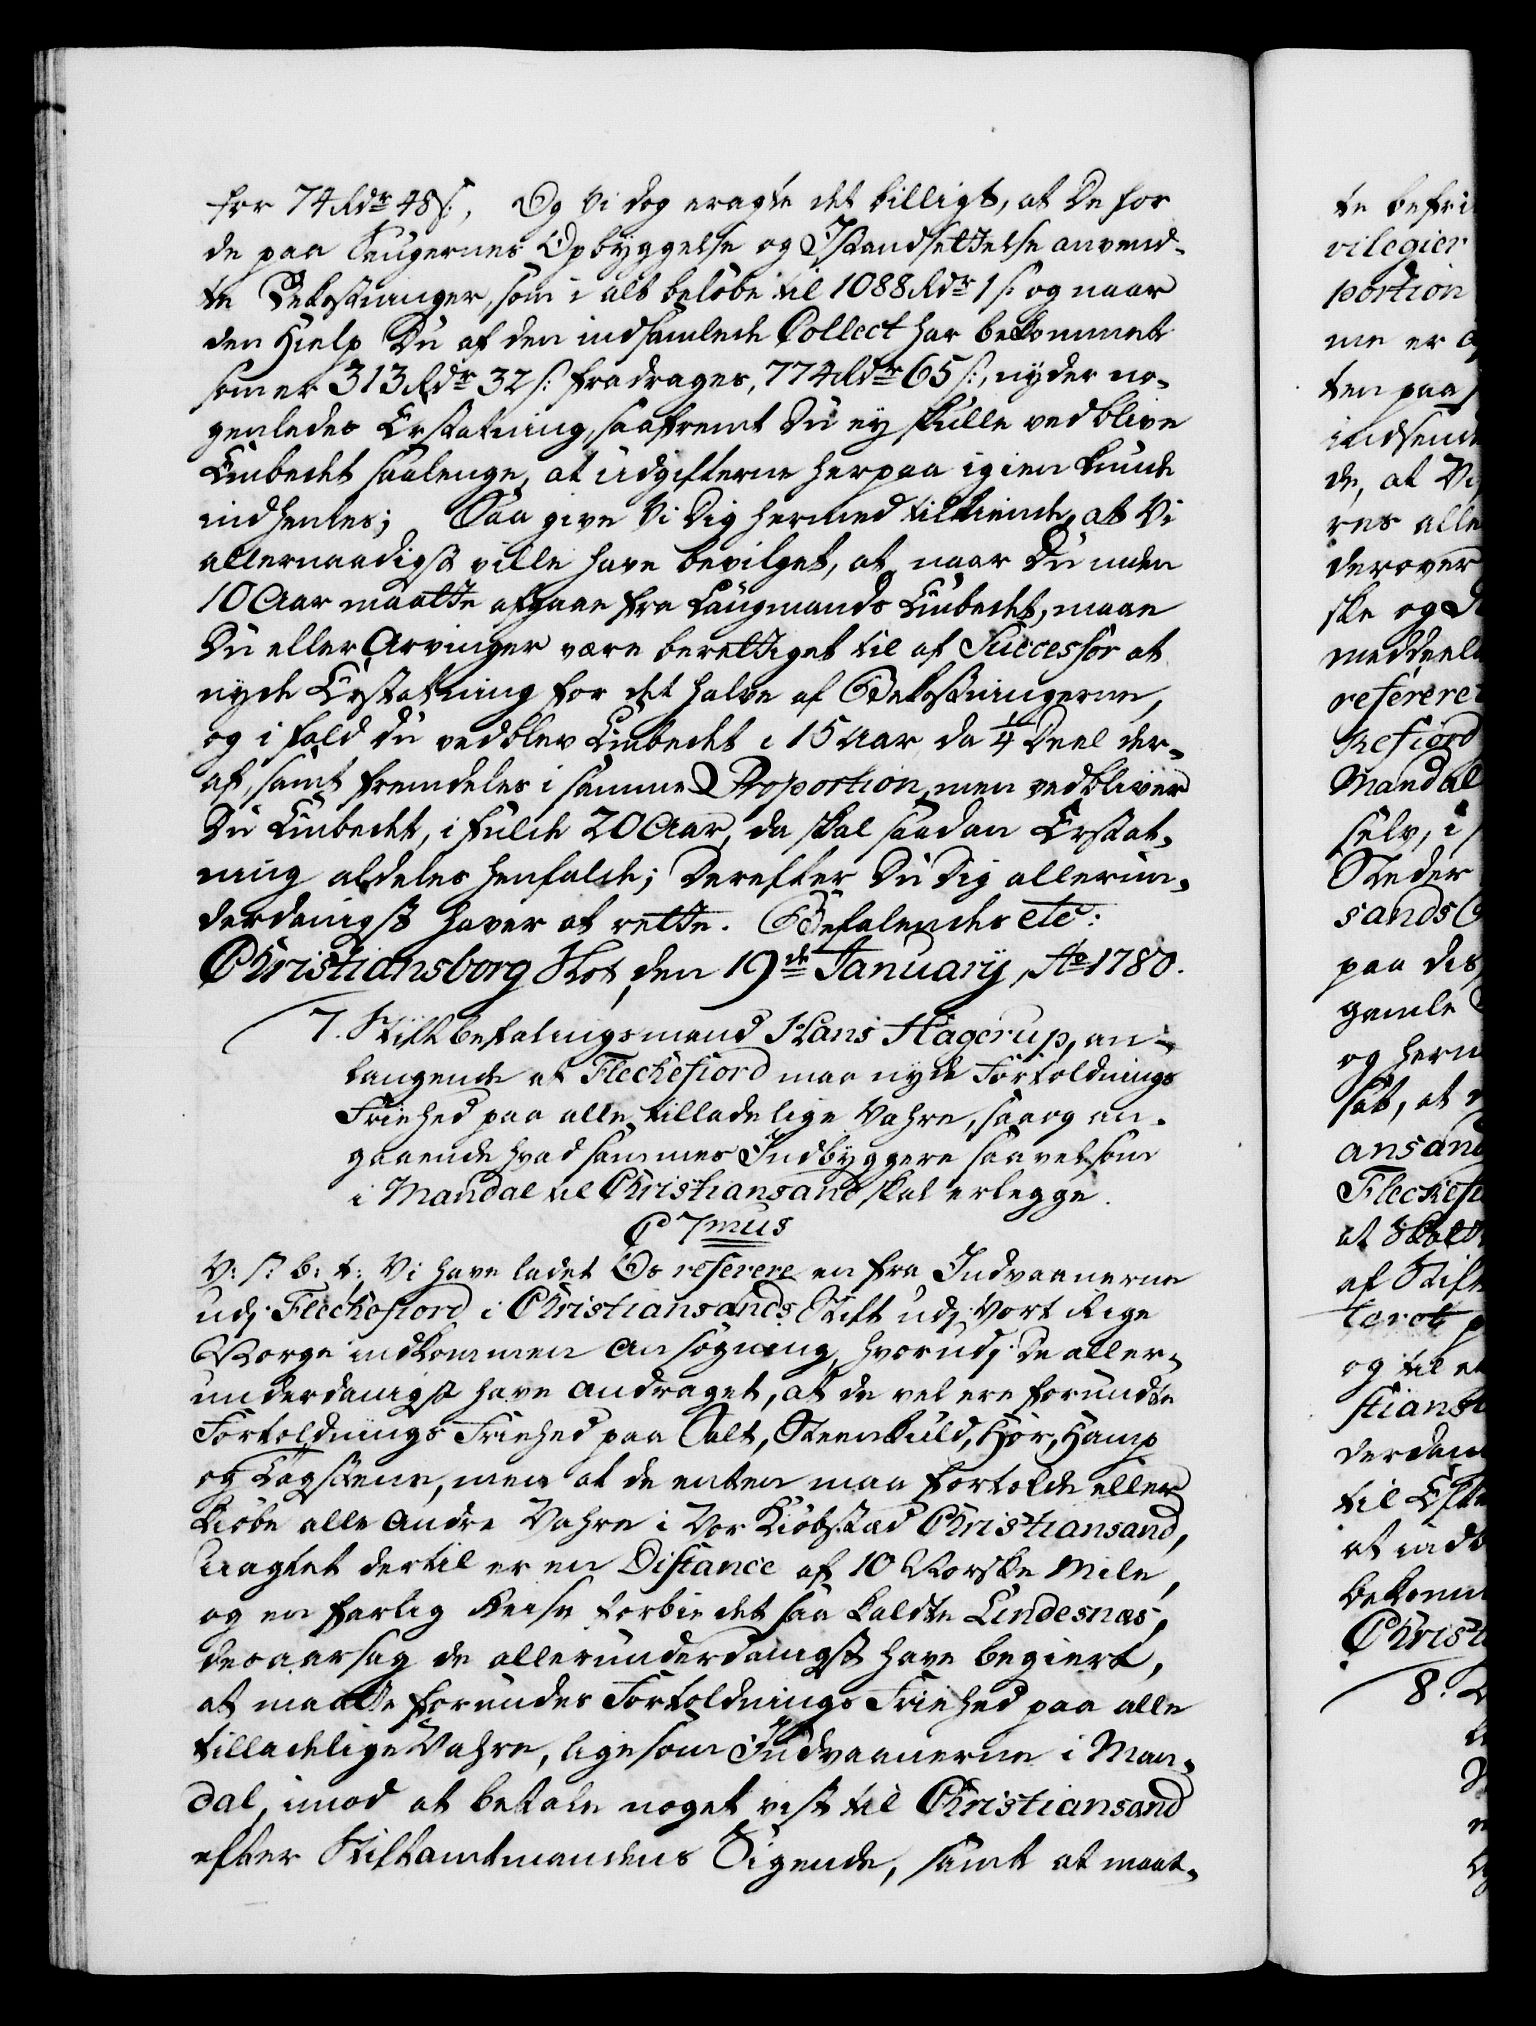 for 74 Rdr 48 s:, Og Vi dog eragte det billigt, at De for
de paa Laugernes Opbyggelse og Istandsettelse anvend-
te Bekostninger, som i alt beløbe til 1088 Rdr 1 s: og naar
den Hielp Du af den indsamlede Collect har bekommet
som er 313 Rdr 32 s: fradrages, 774 Rdr 65 s:, nyder no-
genledes Erstatning, saafremt Du ey skulle ved blive
Embedet saalenge, at udgifterne herpaa igien kunde
indhentes; Saa give Vi Dig hermed tilkiende, at Vi
allernaadigst ville have bevilget, at naar Du inden
10 Aar maatte afgaae fra Laugmands Embedet, maae
Du eller Arvinger være berettiget til af Successor at
nyde Erstatning for det halve af Bekostningerne,
og i fald du vedblev Embedet i 15 Aar da 1/4 Deel der-
af, samt fremdeles i samme Proportion, men vedbliver
Du Embedet, i fulde 20 Aar, da skal saadan Erstat-
ning aldeles henfalde; Derefter Du Dig allerun-
derdanigst haver at rette. Befalendes etc:
Christiansborg Slot, den 19de January Ao 1780.
7. Stiftbefalingsmand Hans Hagerup, an-
langende at Fleckefiord maa nyde Fortoldnings
Friehed paa alle tilladelige Vahre, saa og an-
gaaende hvad sammes Indbyggere saavelsom
i Mandal til Christiansand skal erlegge.
C 7mus
V: S: b: t: Vi have ladet Os referere en fra Indvaanerne
udj Fleckefiord i Christiansands Stift udj Vort Rige
Norge indkommen Ansøgning, hvorudj De aller-
underdanigst have Andraget, at de vel ere forundte
Fortoldnings Friehed paa Salt, Steenkuld, Hør, Hamp
og Tagsteene, men at de enten maa fortolde eller
kiøbe alle Andre Vahre i Vor Kiøbstæd Christiansand,
Uagtet dertil er en Distance af 10 Norske Mile,
og en farlig Reise forbie det saa kaldte Lindesnæs,
desaarsag de allerunderdanigst have begiert,
at maatte forundes Fortoldnings Friehed paa alle
tilladelige Vahre, ligesom Indvaanerne i Man-
dal, imod at betale noget vist til Christiansand
efter Stiftamtmandens Sigende, samt at maat-
te befri
vilegier
portion
me er
ten paa
indsend
de, at Vi
res alle
derover
ske og
meddeel
referere
Refiord
Mandal
selv, i
Steder
sands
paa des
gamle
og herm
sat, at
ansand
Fleckefi
at
af Stift
og til
stians
derdan
til Efte
at indb
bekom
Christi
8.